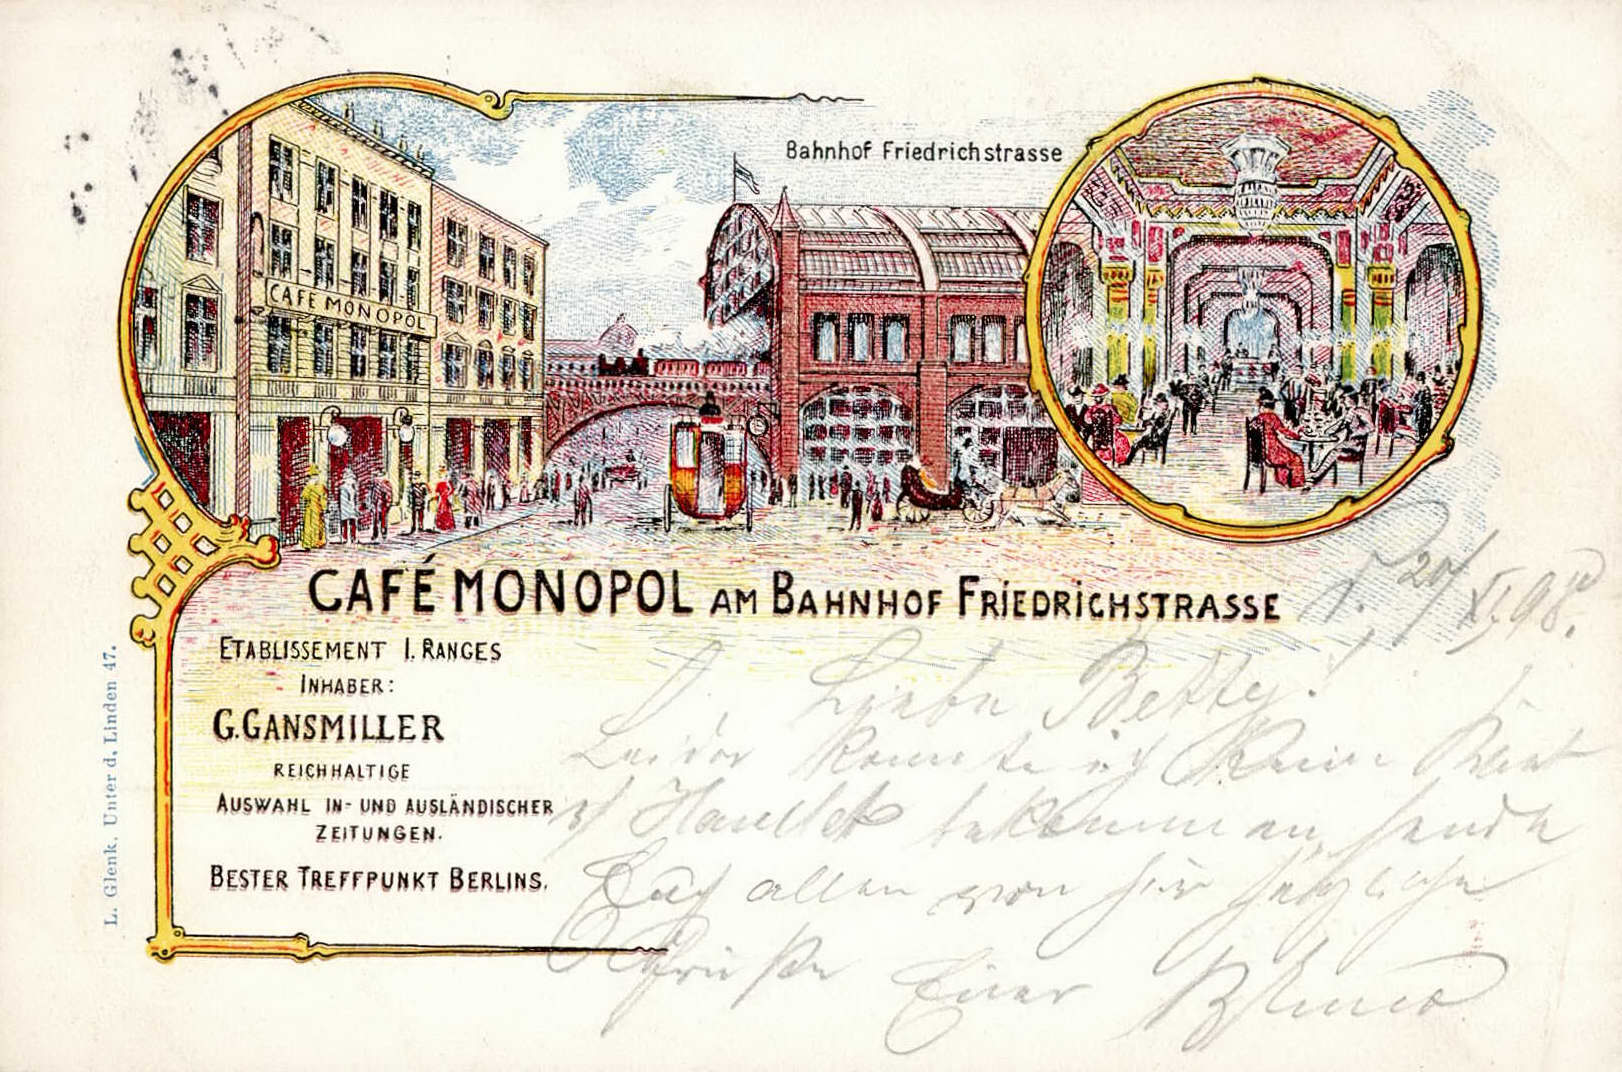 Bahnhof Friedrichstrasse
CAFE MONOPOL
CAFÉ MONOPOL AM BAHNHOF FRIEDRICHSTRASSE
ETABLISSEMENT I. RANGES
INHABER:
G. GANSMILLER
REICHHALTIGE
AUSWAHL IN- UND AUSLÄNDISCHER
ZEITUNGEN.
BESTER TREFFPUNKT BERLINS.
L. Glenk. Unter d. Linden 47.
20/XI. 98.
Liebe Betty!
Leider konnte ich keine
bekommen, sende
Euch allen von hier herzliche
Grüße Euer